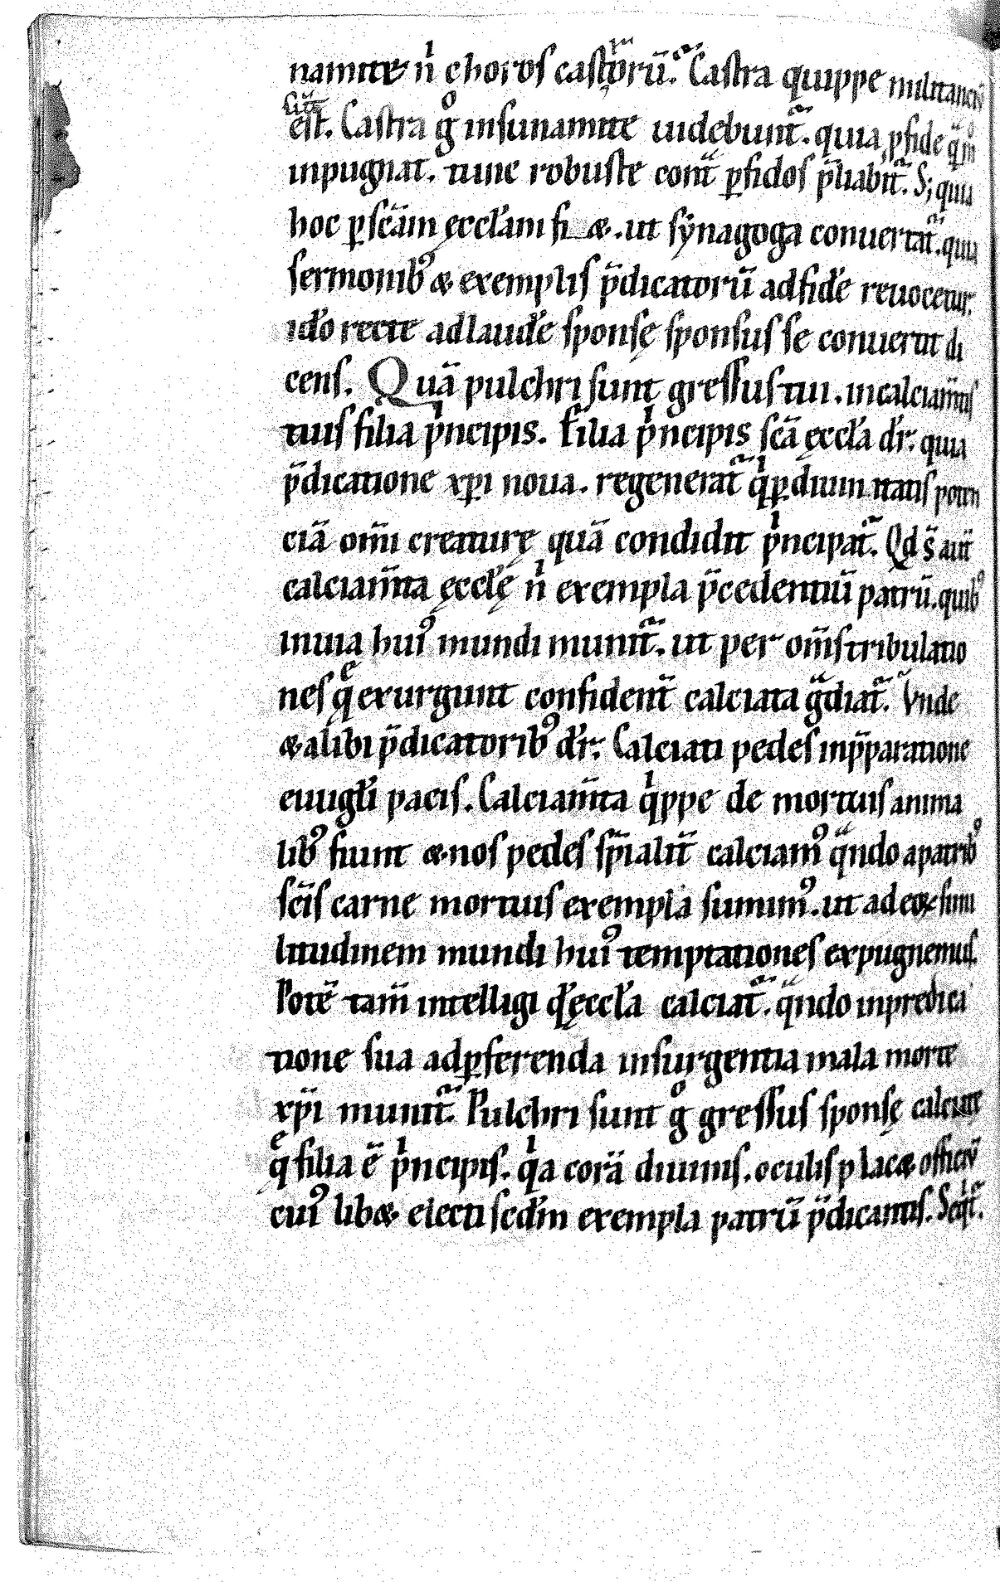 namite n̄ choros castrorū. Castra quippe militanciū
est. Castra g̊ in sunamite uidebunt᷑. quia p fide q̄m
inpugnat. tunc robuste cont᷑ ꝑfidos p̄liabit᷑. S; quia
hoc ꝑ sc̄am ęccl̄am fi&. ut synagoga conuertat᷑. quia
sermonib᷒ & exemplis p̄dicatorū ad fidē reuocetur.
id̄o recte ad laudē sponsę sponsus se conuertit di
cens. Quā pulchri sunt gressus tui. in calciam̄tis
tuis filia pⁱncipis. Filia pⁱncipis sc̄a ęccl̄a dr̄. quia
p̄dicatione xp̄i noua. regenerat᷑ qⁱ ꝑ diuinitatis poten
ciā om̄i creaturę quā condidit pⁱncipat᷑. Qd s̄ aut̄
calciam̄ta ęccl̄ę n̄ exempla p̄cedentiū patrū. quib᷒
in uia hui᷒ mundi munit᷑. ut per om̄s tribulatio
nes q̄ exurgunt confident̄ calciata ḡdiat᷑. Vnde
& alibi p̄dicatorib᷒ dr̄. Calciati pedes in p̄paratione
euugl̄ii pacis. Calciam̄ta qⁱppe de mortuis anima
lib᷒ fiunt & nos pedes sp̄ialit̄ calciam᷒ q̄ndo a patrib᷒
sc̄is carne mortuis exempla sumim᷒. ut ad eoꝝ simi
litudinem mundi hui᷒ temptationes expugnemus.
Potē tam̄ intelligi qd̄ ęccl̄a calciat᷑. q̄ndo in predica
tione sua ad ꝑferenda insurgentia mala morte
xp̄i munit᷑. Pulchri sunt g̊ gressus sponsę calciate
q̄ filia ē pⁱncipis. qⁱa corā diuinis. oculis placꝫ officiū
cui᷒ lib& electi sed̄m exempla patrū p̄dicantis. Seqt᷑.